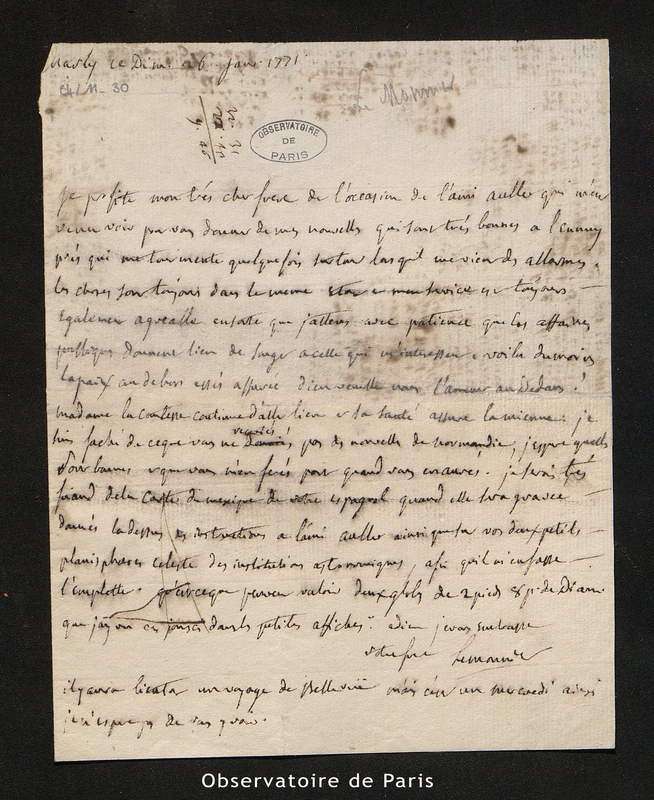 Marly ce Dim. 26 janv. 1771
C4/M-30
Le Monnier
OBSERVATOIRE
DE
PARIS
je profite mon très cher frere de l'occasion de l'ami qui m'est
venu voir pr vous donner de mes nouvelles qui sont très bonnes a l'ennuy
près qui me tourmente quelquefois surtout lorsqu'il me vien des allarmes.
les choses sont toujours dans le meme etat e mon service est toujours
egalement agreable ensorte que j'attens avec patience que les affaires
publiques donnent lieu de songer a celle qui m'interesse. voila du moins
la paix au dehors assés assurée dieu veuille nous l'amener au dedans!
madame la comtesse continue d'aller bien et sa santé assure la mienne. je
suis faché de ceque vous ne recevés pas des nouvelle de normandie, j'espere quelles
sont bonnes e que vous m'en ferés part quand vous en aurés. je serai très
friand de la carte du mexique de votre espagnol quand elle sera gravée
donnés la dessus instructions a l'ami ainsi que sur vos deux petits
planispheres celeste des institutions astronomiques, afin qu'il m'en fasse
l'emplette. qu'est ceque peuvent valoir deux globes de 2 pieds 8 p. de Diam.
que j'ay vu ces jours ci dans les petites affiches? adieu je vous embrasse
votre frere Lemonnier
il y aura bientot un voyage de Bellevue mais c'est un mercredi ainsi
je n'espere pas de vous y voir.
Observatoire de Paris